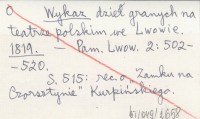 O
Wykaz dzieł granych na
teatrze polskim we Lwowie.
1819. — Pam. Lwow. 2: 502–
–520.
S. 515: rec. o „Zamku na
Czorsztynie" Kurpińskiego.